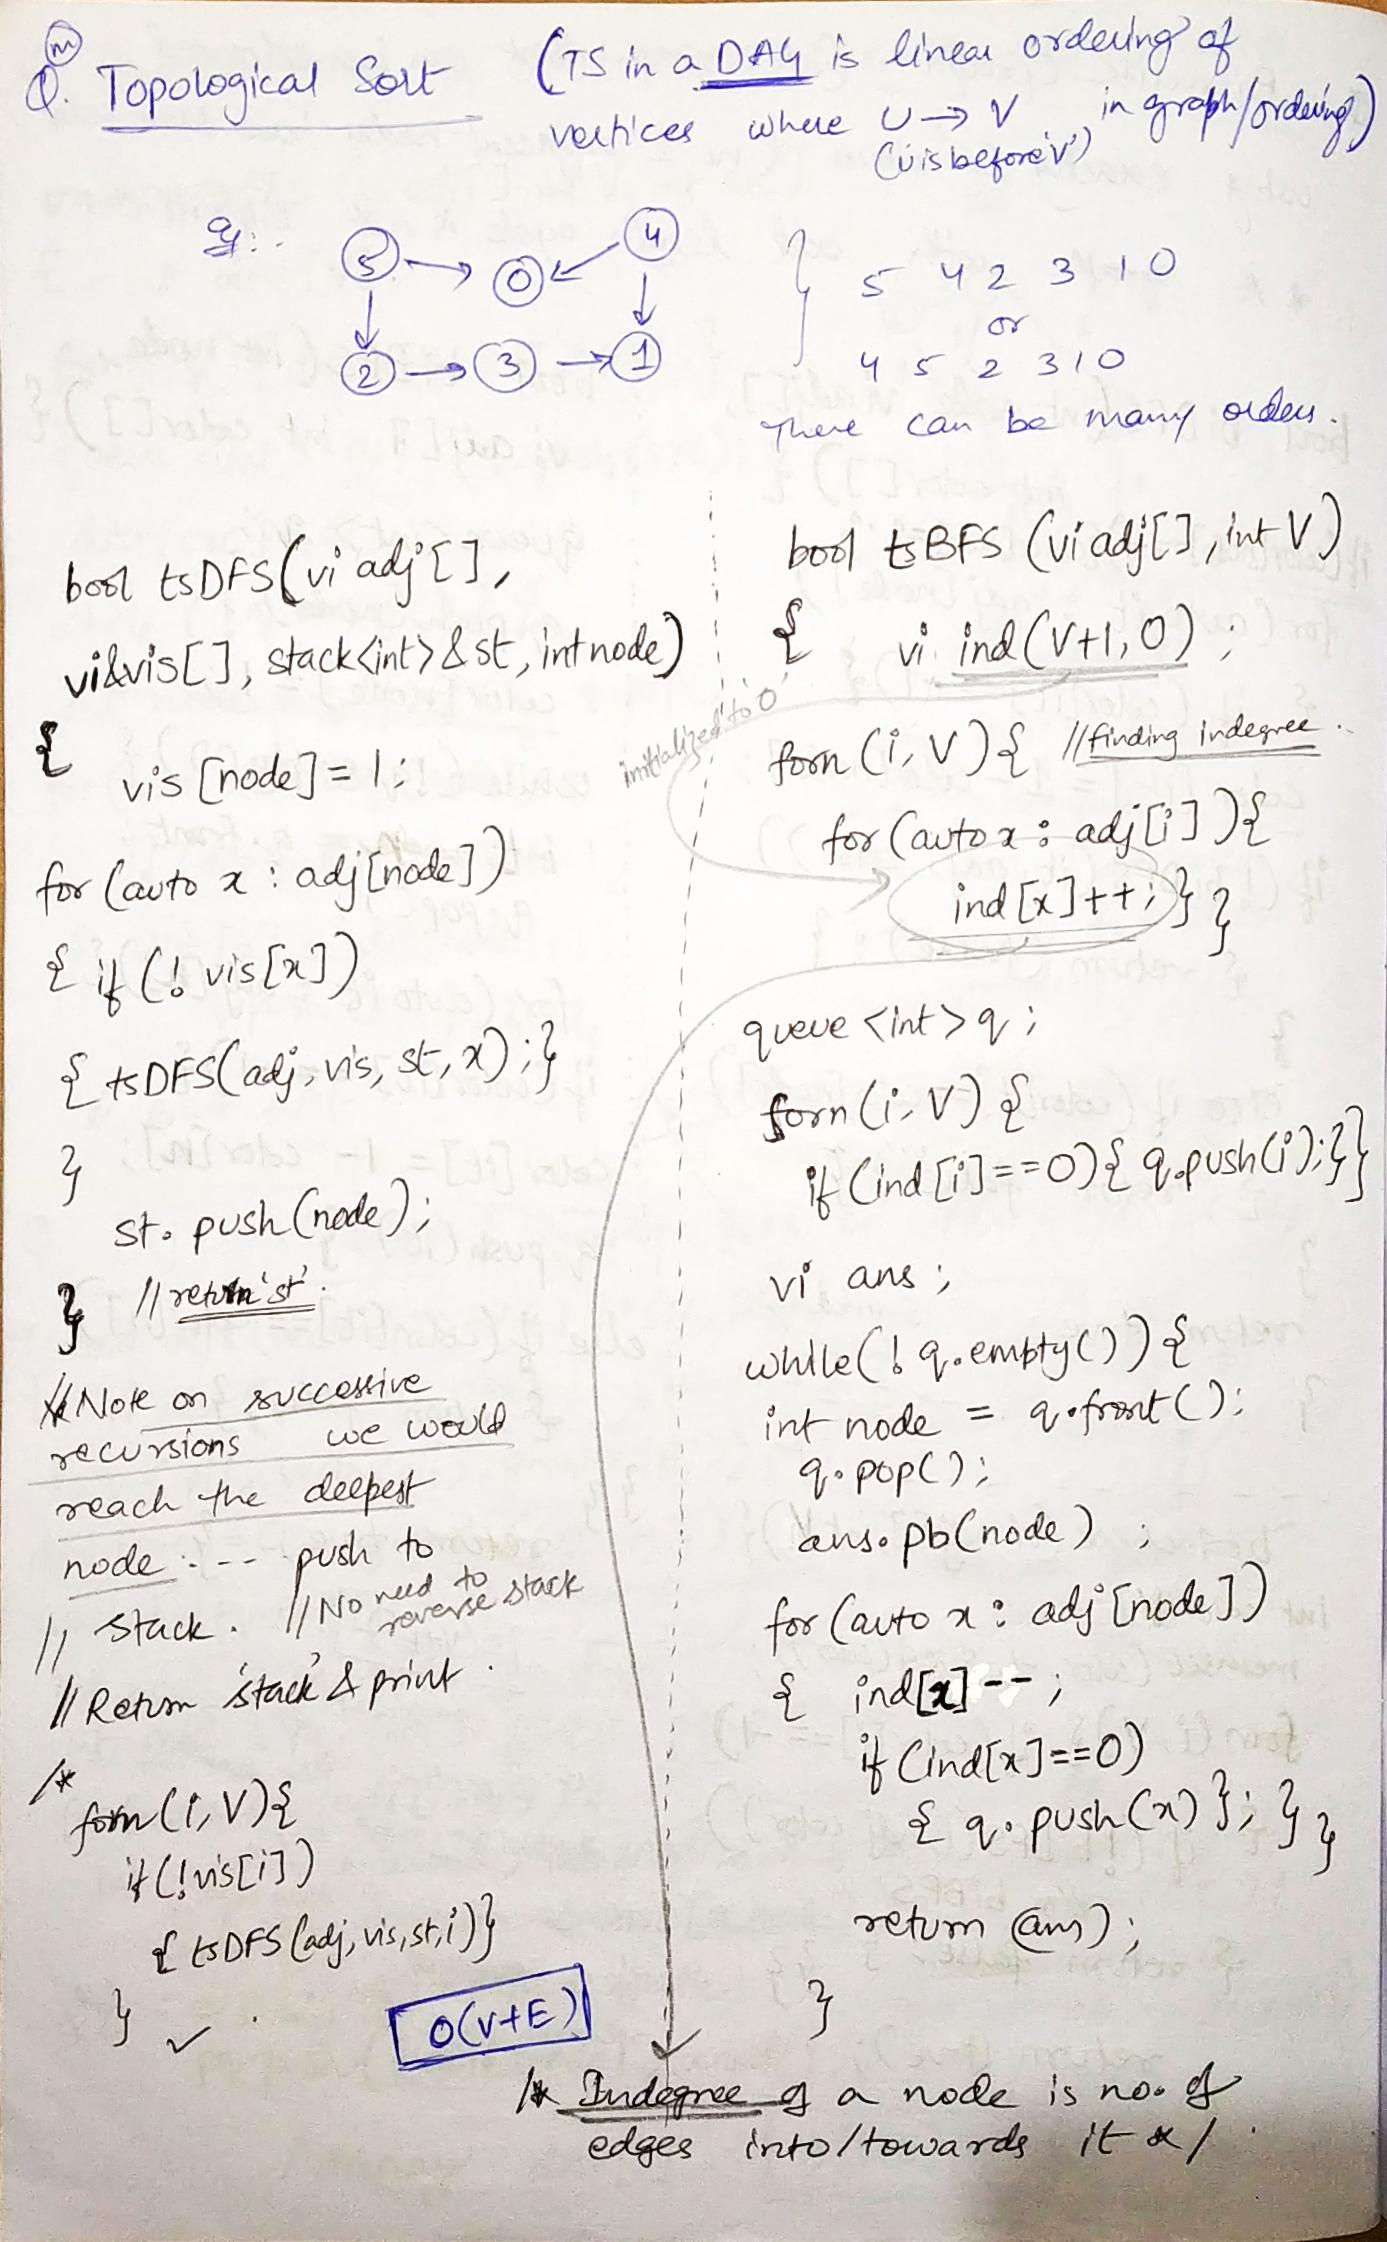 (m)
Q. Topological Sort (TS in a DAG is linear ordering of
vertices where U → V in graph/ordering)
('u' is before 'v')
eg:.
5 → 0 ← 4
2 → 3 → 1
} 5 4 2 3 1 0
or
4 5 2 3 1 0
There can be many orders.
bool tsDFS(vi adj[],
vi&vis[], stack<int>&st, int node)
{
vis[node]=1;
for(auto x: adj[node])
{ if(! vis[x])
{ tsDFS(adj, vis, st, x);}
}
st.push(node);
} // return 'st'.
// Note on successive
recursions we would
reach the deepest
node... -- push to
// stack. // No need to
reverse stack
// Return 'stack' & print.
/*
forn(i,V){
if(!vis[i])
{ tsDFS(adj,vis,st,i)}
} ✓ .
O(V+E)
bool tsBFS (vi adj[], int V)
{ vi ind(V+1, 0);
initialized to '0'
forn(i, V){ // finding indegree..
for(auto x: adj[i]){
ind[x]++;} }
queue<int>q;
forn(i, V){
if(ind[i]==0){ q.push(i);}}
vi ans;
while(! q.empty()){
int node = q.front();
q.pop();
ans.pb(node) ;
for(auto x: adj[node])
{ ind[x]--;
if(ind[x]==0)
{ q.push(x)}; } }
return (ans);
}
/* Indegree of a node is no. of
edges into/towards it */.